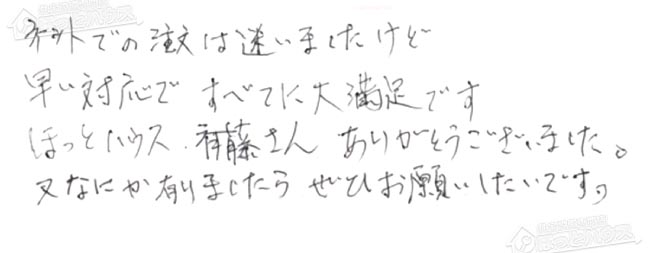 ネットでの注文は迷いましたけど
早い対応で すべてに大満足です
ほっとハウス. 補藤さん ありがとうございました。
又なにか有りましたら ぜひお願いしたいです。
ほっとハウス